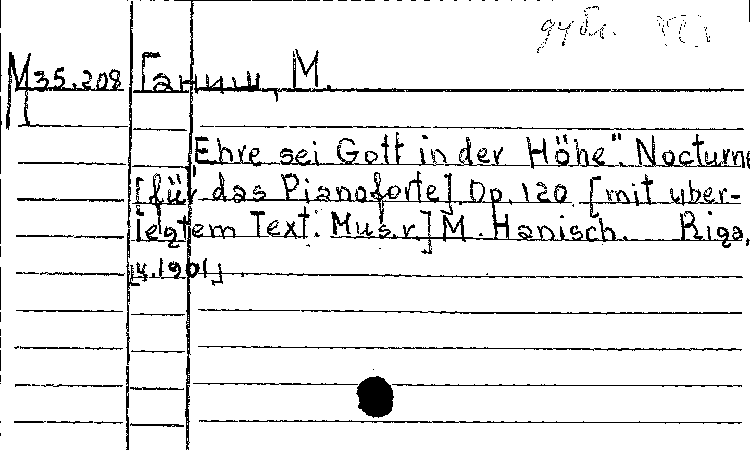 дубл.
М 35.208 Ганиш, М.
"Ehre sei Gott in der Höhe". Nocturne
[für das Pianoforte] Op. 120 [mit uber-
legtem Text. Mus.r.] M. Hanisch. Riga,
[ц.1901].